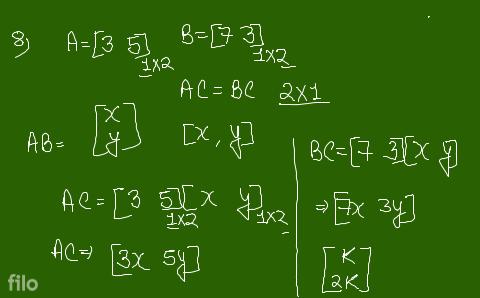 8) A=[3 5]1x2 B=[7 3]1x2
AC=BC 2x1
AB= [x
y] [x, y]
AC=[3 5]1x2[x y]1x2
AC⇒ [3x 5y]
BC=[7 3][x y]
⇒[7x 3y]
[K
2K]
filo